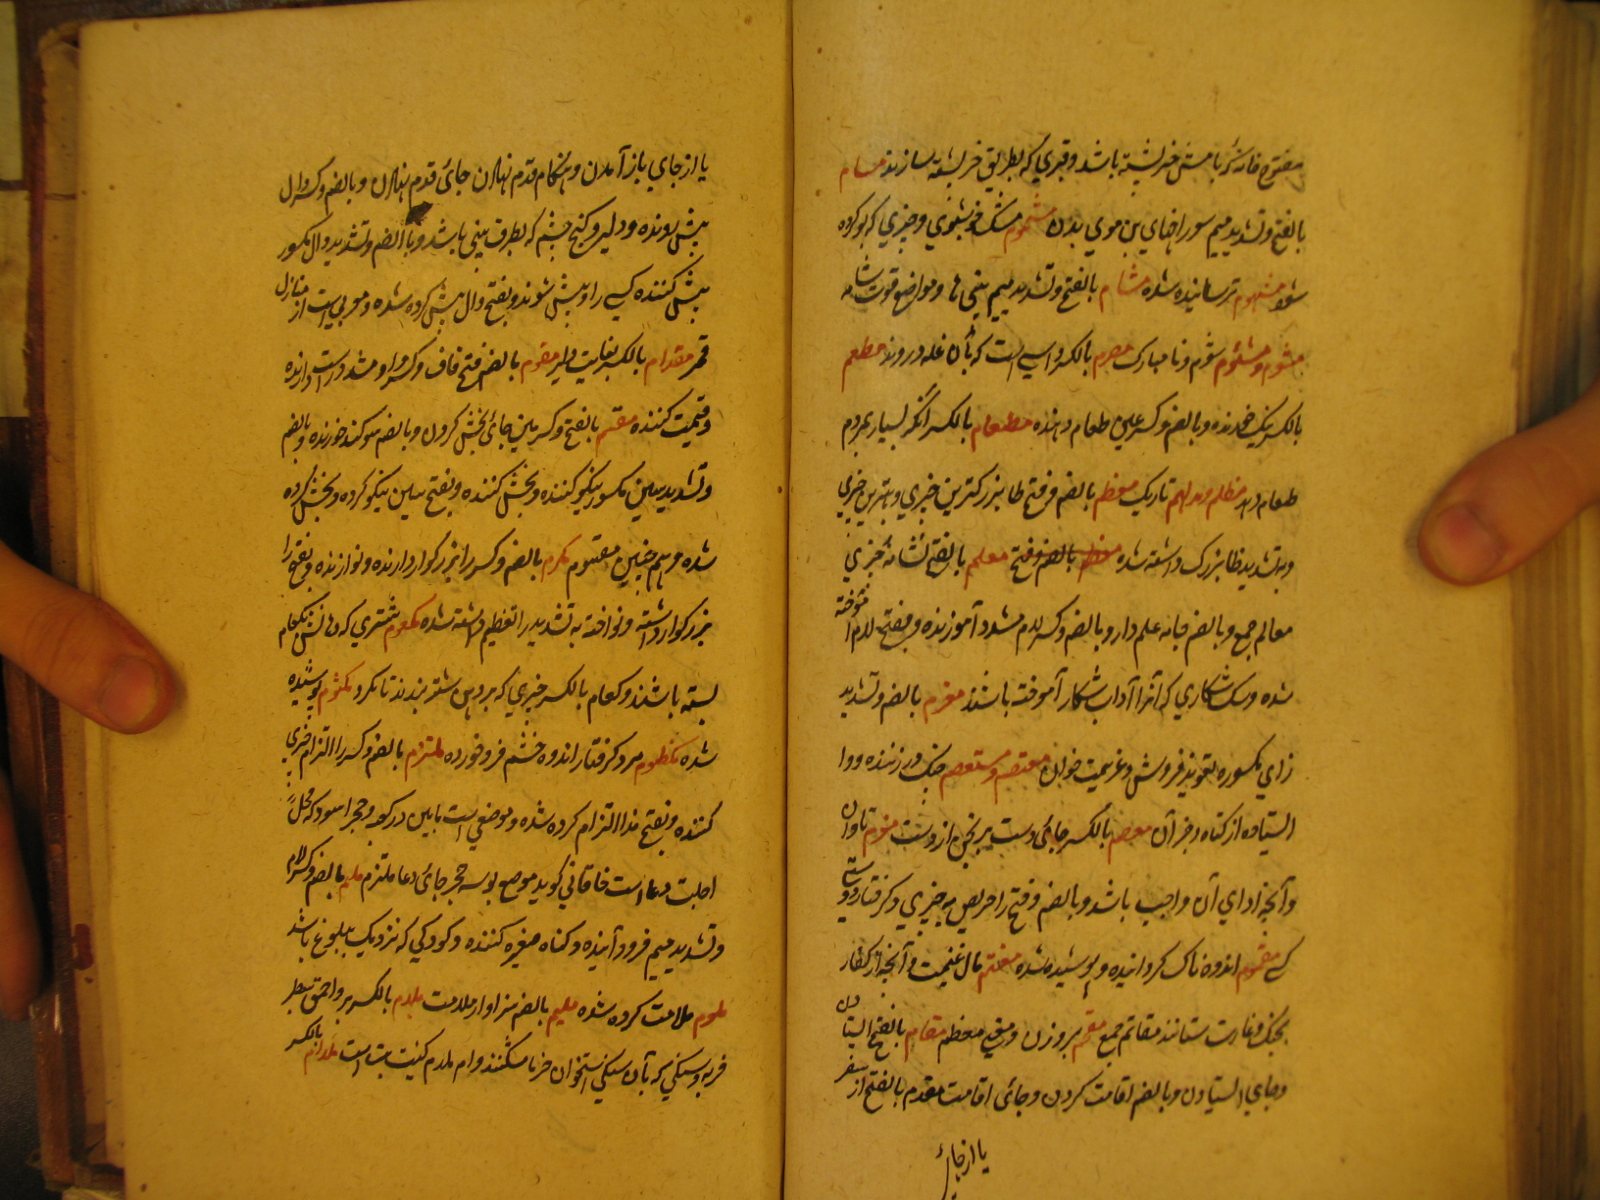 بالفتح و تشدید میم سوراخهای بن موی بدن مشموم مشک خوشبوی و چیزی که بو کرده
شود مسهوم ترسانیده شده مشام بالفتح و تشدید میم بینی ها و مواضع قوت شامه
مشوم و مشئوم شوم و نامبارک مصرم بالکسر داسی است که بآن غله دروند مطعم
بالکسر نیک خورنده و بالضم و کسر عین طعام دهنده مطعام بالکسر آنکه بسیار بمردم
طعام دهد مظلم و مدلهم تاریک معظم بالضم و فتح ظا بزرکترین چیزی و بهترین چیزی
و به تشدید ظا بزرک داشته شده معظم بالضم و فتح معلم بالفتح نشانه چیزی
معالم جمع و بالضم جامه علم دار و بالضم و کسر لام مشدد آموزنده و بفتح لام آموخته
شده و سک شکاری که آنرا آداب شکار آموخته باشند معزم بالضم و تشدید
زای مکسوره تعویذ فروش و عزیمت خوان معتصم و مستعصم چنک در زننده و وا
ایستاده از کناه و جز آن معصم بالکسر جای دست برنجن از دست مغرم تاوان
و آنچه ادای آن واجب باشد و بالضم و فتح را حریص به چیزی و کرفتار دوستی
کسی مغموم اندوه ناک کردانیده و پوشیده شده مغنم مال غنیمت و آنچه از کفار
بجنک و غارت ستانند مغانم جمع مفخم بر وزن و معنی معظم مقام بالفتح ایستادن
و جای ایستادن و بالضم اقامت کردن و جائ اقامت مقدم بالفتح از سفر
یا از جائ
یا از جای باز آمدن و هنکام قدم نهادن جائ قدم نهادن و بالضم و کسر دال
پیش رونده و دلیر و کنج چشم که بطرف بینی باشد و با الضم و تشدید دال مکسور
پیش کننده کسی را و پیش شونده و بفتح دال پیش کرده شده و موبی است از منازل
قمر مقدام بالکسر بغایت دلیر مقوم بالضم و فتح قاف و کسر واو مشدد راست دارنده
و قیمت کننده مقسم بالفتح و کسر سین جائ بخش کردن و بالضم سوکند خورنده و بالضم
و تشدید سین مکسور نیکو کننده و بخش کننده و بفتح سین نیکو کرده و بخش کرده
شده و همچنین مقسوم مکرم بالضم و کسر را بزرکوار دارنده و نوازنده و بفتح را
بزرکوار داشته و نواخته به تشدید را تعظیم داشته شده مکعوم شتری که دهانش بکعام
بسته باشند و کعام بالکسر چیزی که بر دهن شتر بندند تا نکزد مکتوم پوشیده
شده مکظوم مرد کرفتار اندوه خشم فرو خورده ملتزم بالضم و کسر را التزام چیزی
کننده و بفتح مذا التزام کرده شده و موضعی است مابین در کعبه و حجر اسود که محل
اجابت دعا است خاقانی کوید موضع بوسه حجر جائ دعا ملتزم ملم بالضم و کسر لام
و تشدید میم فرود آینده و کناه صغیره کننده و کودکی که نزدیک ببلوغ باشد
ملوم ملامت کرده شده ملیم بالضم سزاوار ملامت ملدم بالکسر مرد احمق سطبر
فربه و سنکی که بآن سنکی استخوان خرما شکنند و ام ملدم کنیت تب است ملدام بالکسر